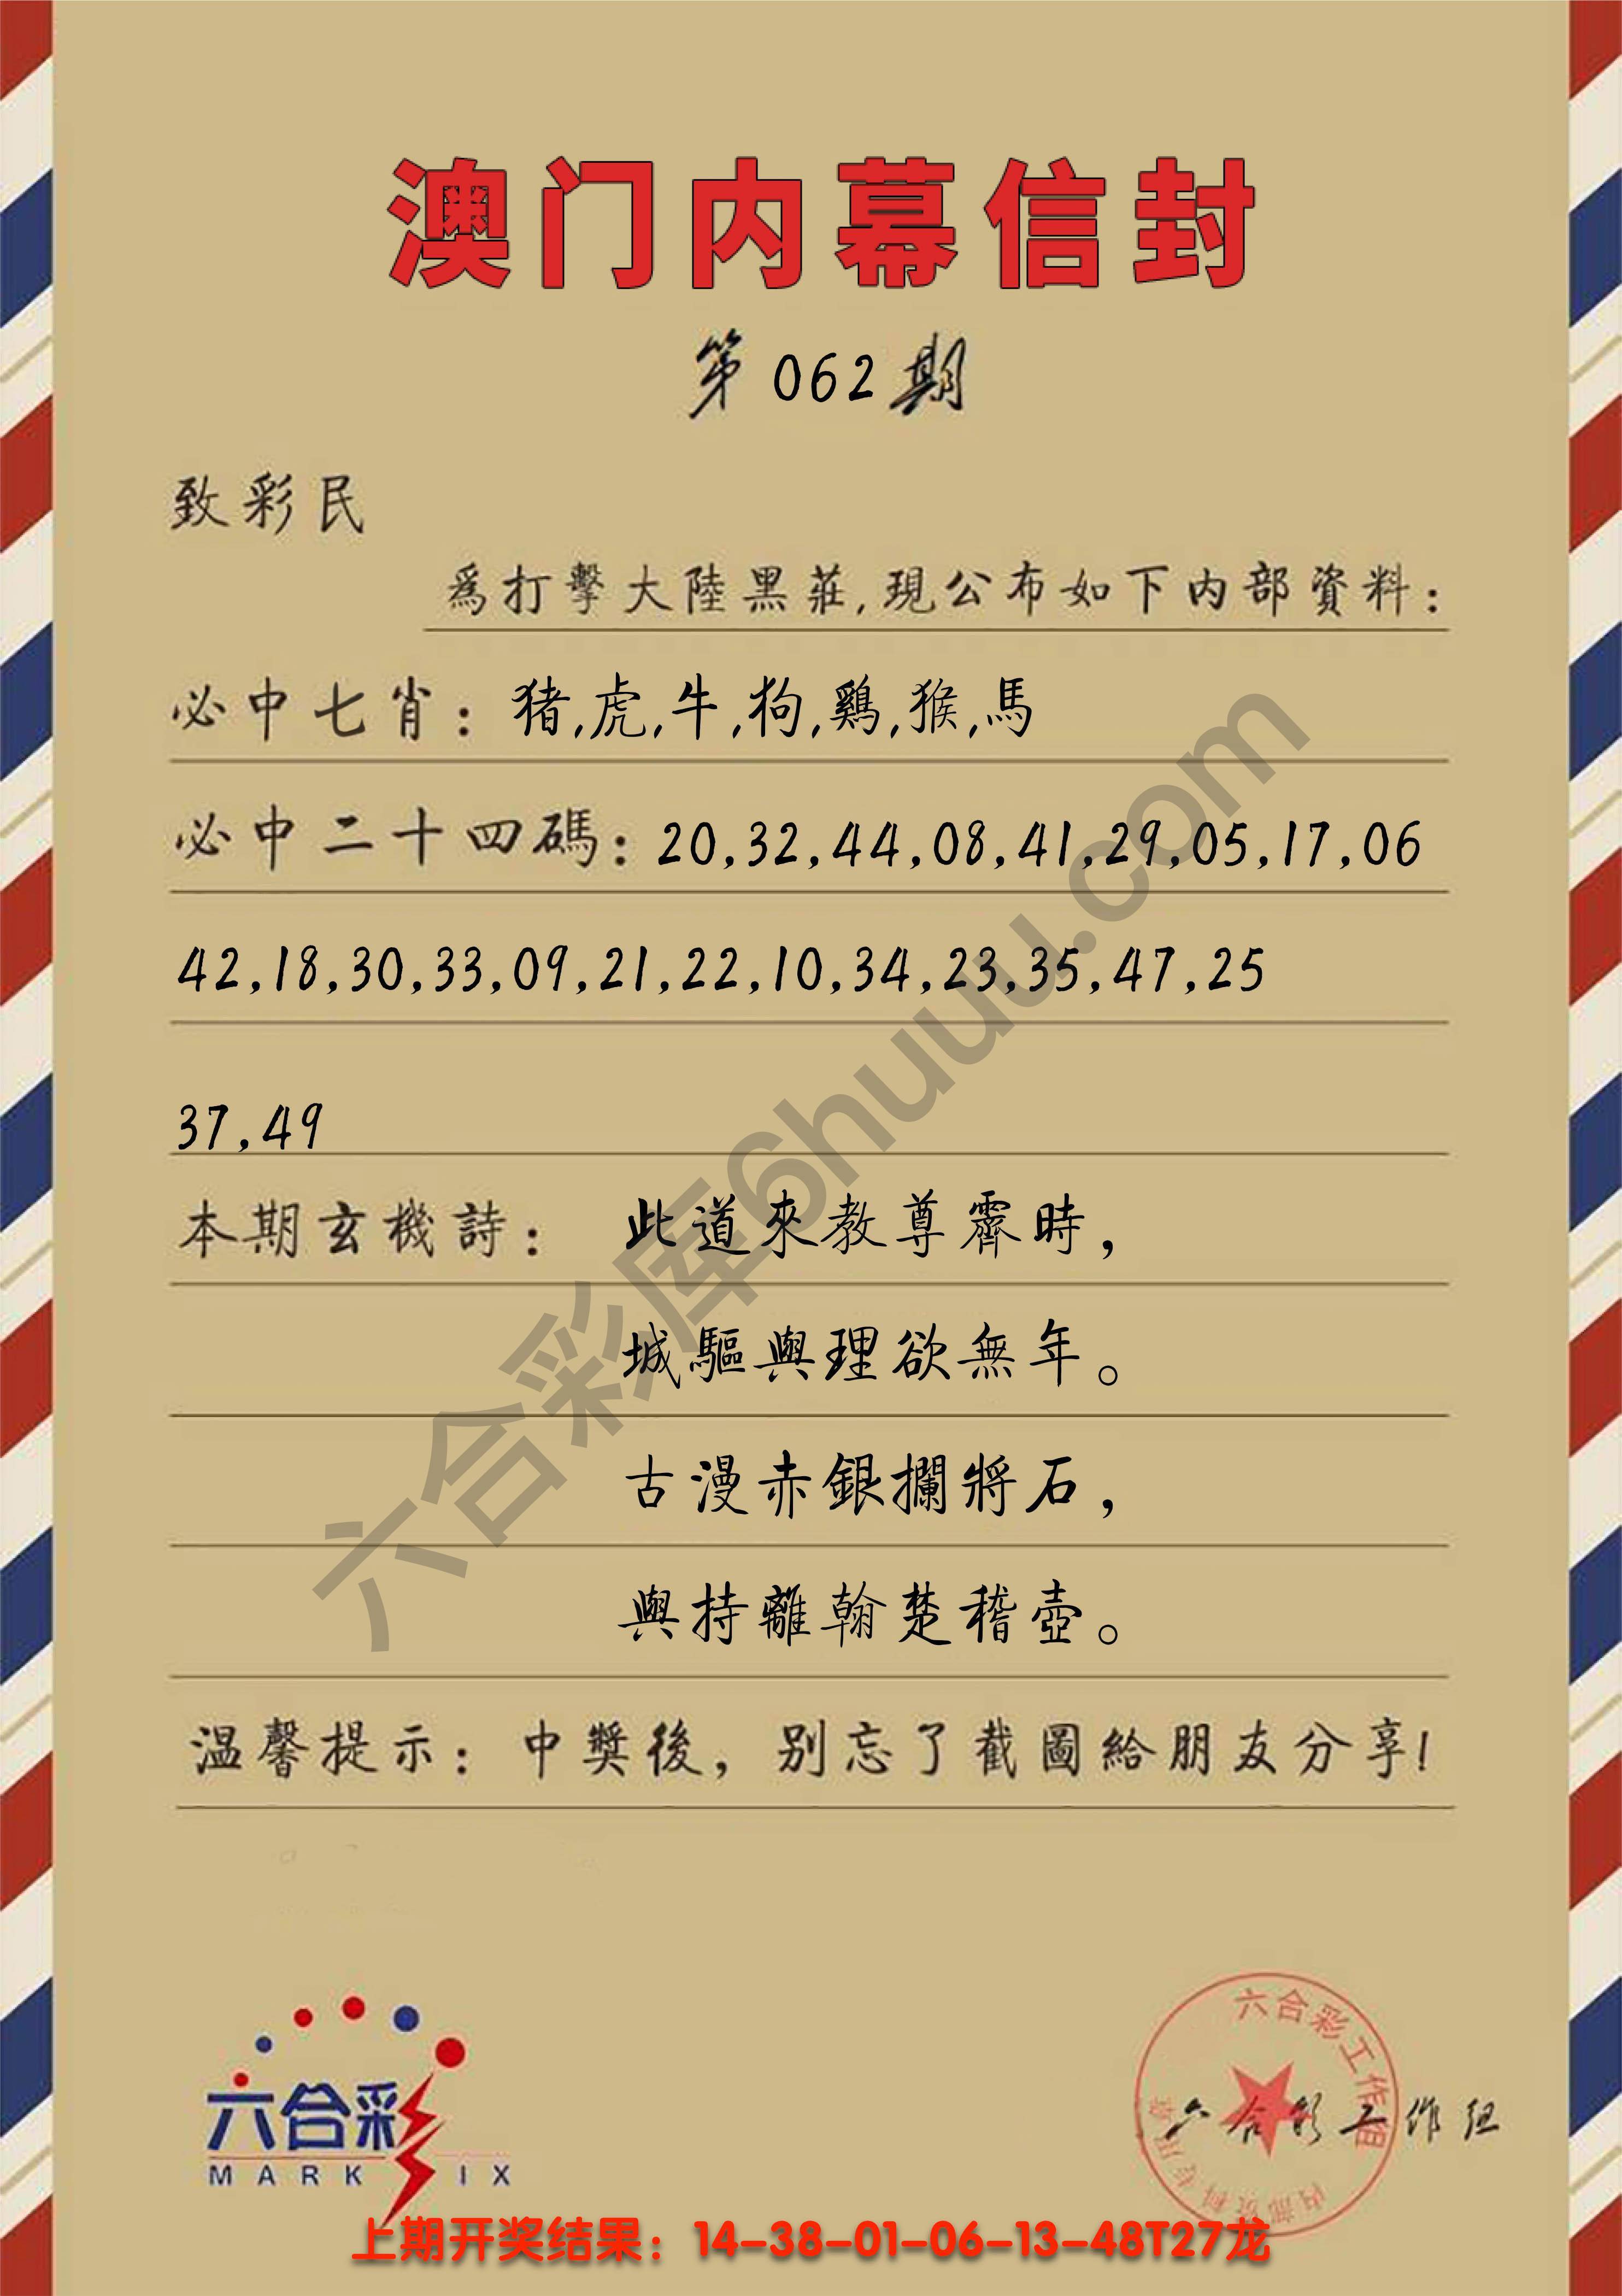 澳门内幕信封
第062期
致彩民
爲打擊大陸黑莊,現公布如下内部資料:
必中七肖:猪,虎,牛,狗,鷄,猴,馬
必中二十四碼:20,32,44,08,41,29,05,17,06
42,18,30,33,09,21,22,10,34,23,35,47,25
37,49
本期玄機詩: 此道來教尊霽時,
城驅輿理欲無年。
古漫赤銀攔將石,
輿持離翰楚稽壺。
温馨提示:中獎後,别忘了截圖給朋友分享!
六合彩库6huuu.com
六合彩
MARK SIX
六合彩工作组
六合彩工作组
上期开奖结果:14-38-01-06-13-48T27龙